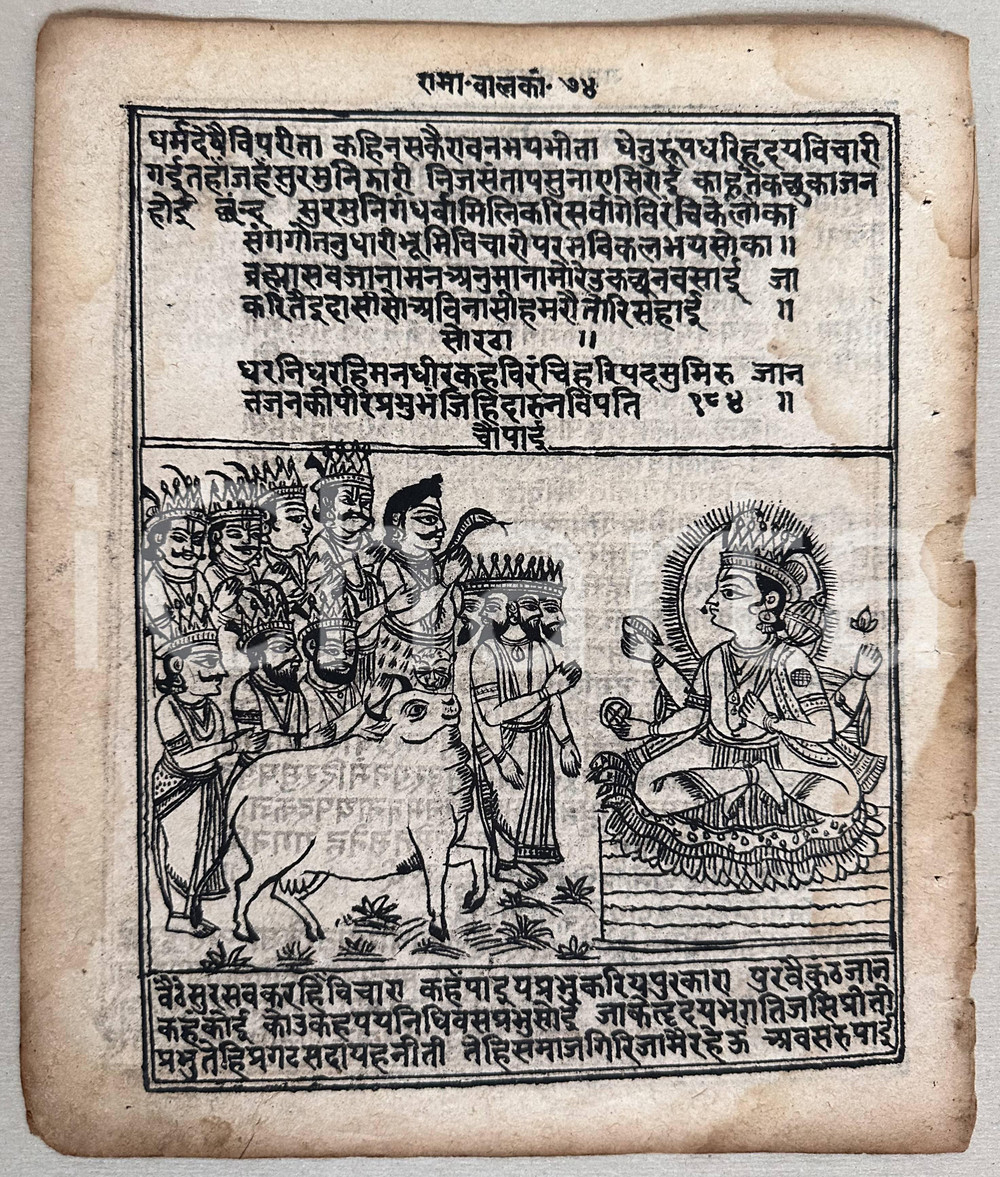 रामा॰वालकां॰ ७४
धर्मदेषैविपरीता कहिनसकैरावनभयभीता धेनुरूपधरिहृदयविचारी
गईतहांजहंसुरमुनिझारी निजसंतापसुनाएसिरोई काहूतेकछुकाजन
होई छन्द सुरमुनिगंधर्वामिलिकरिसर्वागेविरंचिकेलोका
संगगोतनुधारीभूमिविचारीपरमविकलभयसोका॥
ब्रह्मासबजानामनअनुमानामोरउकछुनबसाई जा
करितैंदासीसोअविनासीहमरौतोरिसहाई ॥
सोरठा ॥
धरनिधरहिमनधीरकहविरंचिहरिपदसुमिरु जान
तजनकीपीरप्रभुभंजिहिदारुनविपति १८४ ॥
चौपाई
बैठेसुरसबकरहिंविचारा कहंपाइयप्रभुकरियपुकारा पुरवैकुंठजान
कहकोई कोउकहपयनिधिबसप्रभुसोई जाकेहृदयभगतिजसिप्रीती
प्रभुतेहिप्रगटसदायहनीती तेहिसमाजगिरिजामैंरहेऊ अवसरुपाई